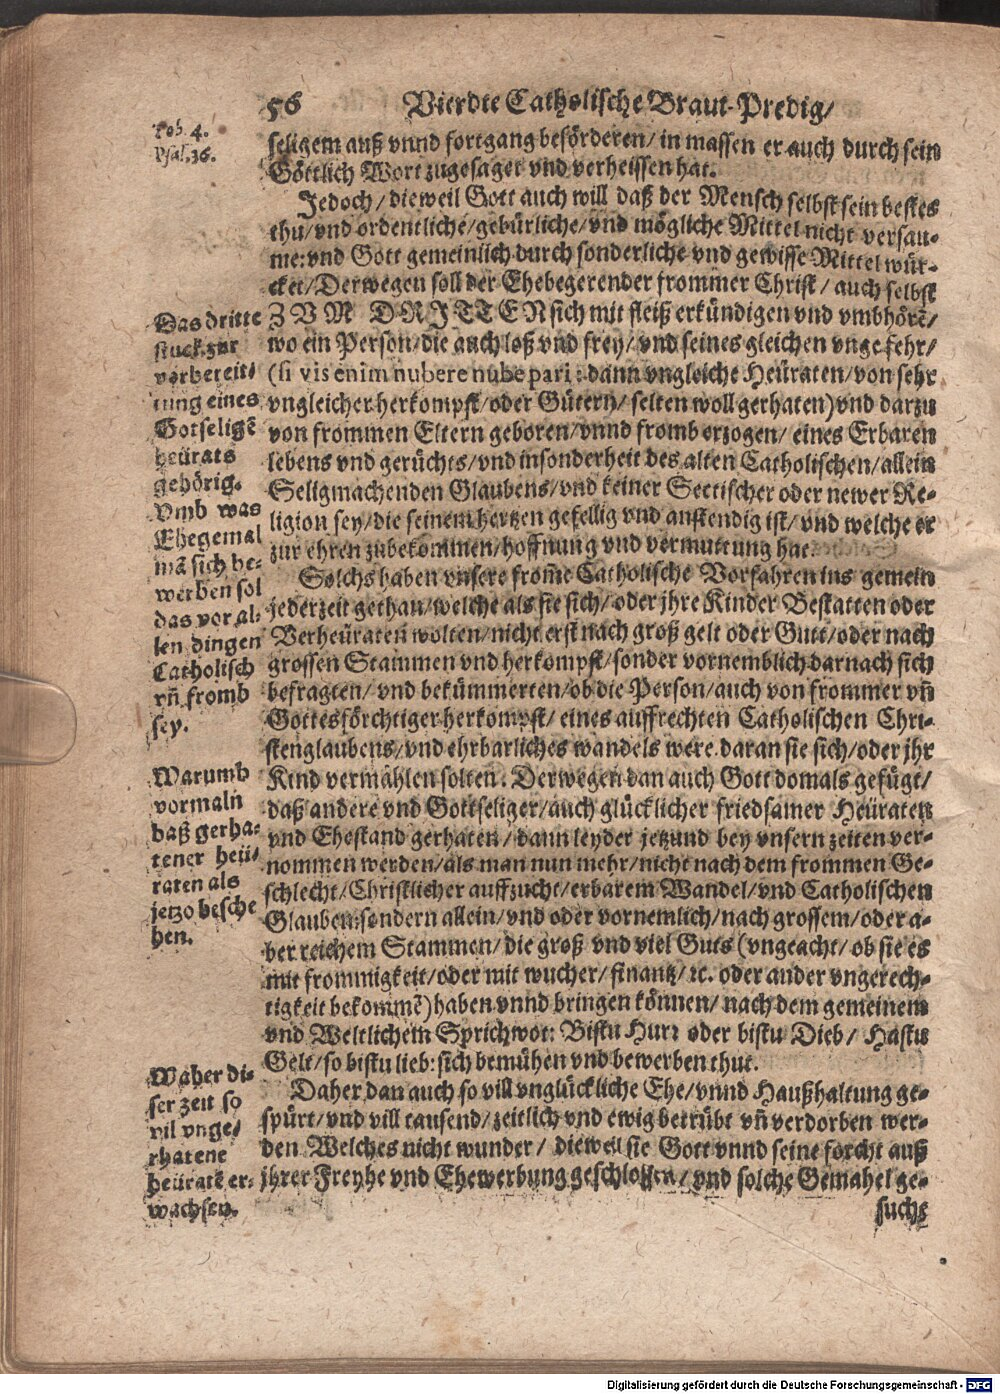 56 Vierdte Catholische Braut-Predig/
Tob. 4.
Psal. 36.
seligem auß vnnd fortgang beförderen/ in massen er auch durch sein
Göttlich Wort zugesaget vnd verheissen hat.
Jedoch/ dieweil Gott auch will daß der Mensch selbst sein bestes
thu/ vnd ordentliche/ gebürliche/ vnd mögliche Mittel nicht versau-
me: vnd Gott gemeinlich durch sonderliche vnd gewisse Mittel wür-
cket/ Derwegen soll der Ehebegerender frommer Christ/ auch selbst
ZVM DRITTEN sich mit fleiß erkündigen vnd vmbhörē/
wo ein Person/ die auch loß vnd frey/ vnd seines gleichen vngefehr/
(si vis enim nubere nube pari: dann vngleiche Heüraten/ von sehr
vngleicher herkompst/ oder Gütern/ selten woll gerhaten) vnd darzu
von frommen Eltern geboren/ vnnd fromb erzogen/ eines Erbaren
lebens vnd gerüchts/ vnd insonderheit des alten Catholischen/ allein
Seligmachenden Glaubens/ vnd keiner Sectischer oder newer Re-
ligion sey/ die seinem hertzen gefellig vnd anstendig ist/ vnd welche er
zur ehren zubekommen/ hoffnung vnd vermuttung hat.
Das dritte
stuck zur
vorbereit/
tung eines
Gotseligē
heürats
gehörig.
Vmb was
Ehegemal
mā sich be-
werben sol
das vor al-
len dingen
Catholisch
vñ fromb
sey.
Solchs haben vnsere from̄e Catholische Vorfahren ins gemein
jederzeit gethan/ welche als sie sich/ oder jhre Kinder Bestatten oder
Verheüraten wolten/ nicht erst nach groß gelt oder Gutt/ oder nach
grossen Stammen vnd herkompst/ sonder vornemblich darnach sich
befragten/ vnd bekümmerten/ ob die Person/ auch von frommer vñ
Gottesförchtiger herkompst/ eines auffrechten Catholischen Chri-
stenglaubens/ vnd ehrbarliches wandels were. daran sie sich/ oder jhr
Kind vermählen solten. Derwegen dan auch Gott domals gefügt/
daß andere vnd Gottseliger/ auch glücklicher friedsamer Heüraten
vnd Ehestand gerhaten/ dann leyder jetzund bey vnsern zeiten ver-
nommen werden/ als man nun mehr/ nicht nach dem frommen Ge-
schlecht/ Christlicher auffzucht/ erbarem Wandel/ vnd Catholischen
Glauben: sondern allein/ vnd oder vornemlich/ nach grossem/ oder a-
ber reichem Stammen/ die groß vnd viel Guts (vngeacht/ ob sie es
mit frommigkeit/ oder mit wucher/ finantz/ ꝛc. oder ander vngerech-
tigkeit bekommē) haben vnnd bringen können/ nach dem gemeinem
vnd Weltlichem Sprichwot: Bistu Hurr oder bistu Dieb/ Hastu
Gelt/ so bistu lieb: sich bemühen vnd bewerben thut.
Warumb
vormaln
daß gerha-
tener heü-
raten als
jetzo besche
hen.
Daher dan auch so vill vnglückliche Ehe/ vnnd Haußhaltung ge-
spürt/ vnd vill tausend/ zeitlich vnd ewig betrübt vñ verdorben wer-
den Welches nicht wunder/ dieweil sie Gott vnnd seine forcht auß
jhrer Freyhe vnd Ehewerbung geschlossen/ vnd solche Gemahel ge-
Waher di-
ser zeit so
vil vnge-
rhatene
heüratē er-
wachsen.
suche
Digitalisierung gefördert durch die Deutsche Forschungsgemeinschaft - DFG